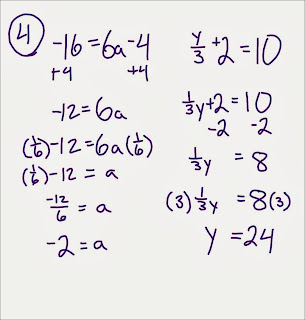 4
-16 = 6a - 4
+4 +4
-12 = 6a
(1/6) -12 = 6a (1/6)
(1/6) -12 = a
-12/6 = a
-2 = a
y/3 + 2 = 10
1/3 y + 2 = 10
-2 -2
1/3 y = 8
(3) 1/3 y = 8 (3)
y = 24